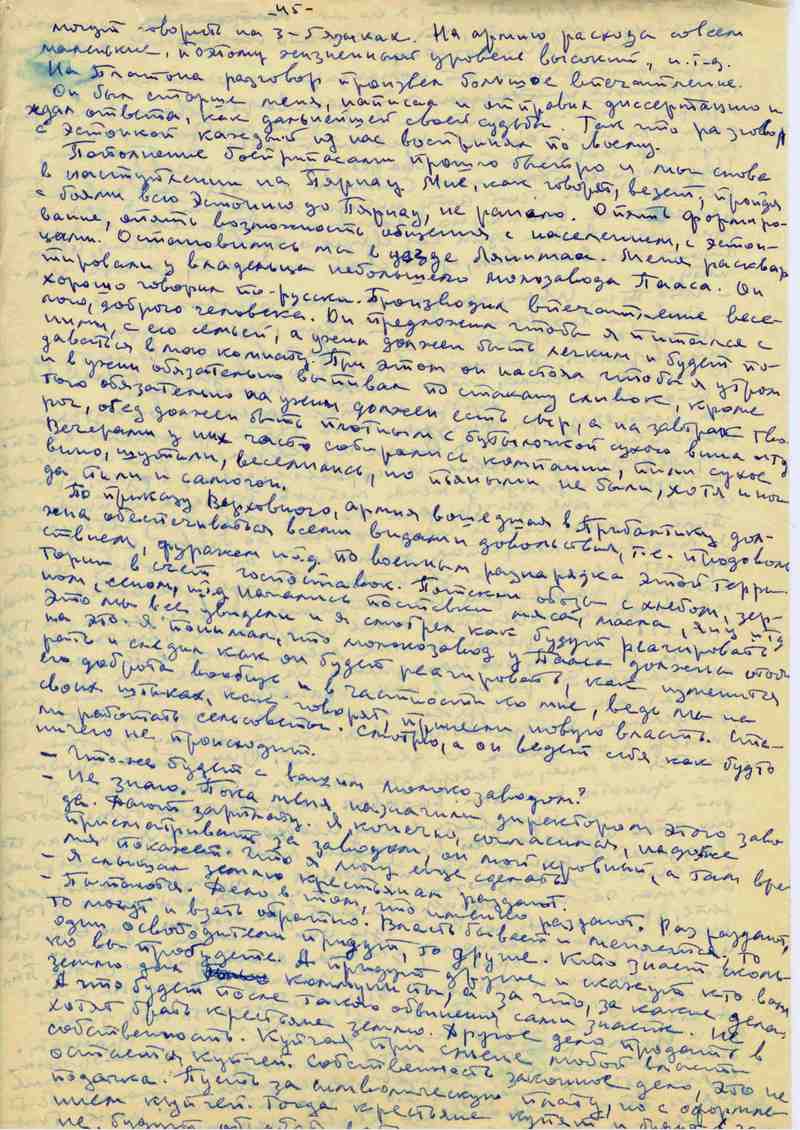 -45-
могут говорить на 3-5 языках. На армию расхода совсем
маленькие, поэтому жизненный уровень высокий, и.т.д.
На Платона разговор произвел большое впечатление.
Он был старше меня, написал и отправил диссертацию и
ждал ответа, как дальнейшей своей судьбы. Так что разговор
с эстонкой каждый из нас воспринял по своему.
Пополнение боеприпасами прошло быстро и мы снова
в наступлении на Пярнау. Мне, как говорят, везет, пройдя
с боями всю Эстонию до Пярнау, не ранило. Опять формиро-
вание, опять возможность общения с населением, с эстон-
цами. Остановились мы в уезде Ляянимаа. Меня расквар
тировали у владельца небольшого молозавода Пааса. Он
хорошо говорил по-русски. Производил впечатление весе-
лого, доброго человека. Он предложил чтобы я питался с
ними, с его семьей, а ужин должен быть легким и будет по-
даваться в мою комнату. При этом он настоял чтобы я утром
и в ужин обязательно выпивал по стакану сливок, кроме
того обязательно на ужин должен есть сыр, а на завтрак тво
рог, обед должен быть плотным с бутылочкой сухого вина итд
Вечерами у них часто собирались компании, пили сухое
вино, шутили, веселились, но пьяными не были, хотя иног
да пили и самогон.
По приказу Верховного, армия вошедшая в Прибалтику дол-
жна обеспечиваться всеми видами довольствия, т.е. продоволь
ствием, фуражем итд. по военным разнарядка этой терри-
тории в счет госпоставок. Потекли обозы с хлебом, зер-
ном, сеном, итд начались поставки мяса, масла, яиц итд
Это мы все увидели и я смотрел как будут реагировать
на это. Я понимал, что молокозавод у Пааса должны отоб
рать и следил как он будет реагировать, как изменится
его доброта вообще и в частности ко мне, ведь мы на
своих штыках, как говорят, принесли новую власть. Ста-
ли работать сельсоветы. Смотрю, а он ведет себя как будто
ничего не происходит.
- Что-же будет с вашим молокозаводом?
- Не знаю. Пока меня назначили директором этого заво
да. Дают зарплату. Я конечно, согласился, надо же
присматривать за заводом, он мой кровный, а там вре
мя покажет. Что я могу еще сделать
- Я слышал землю крестьянам раздают.
- Пытаются. Дело в том, что именно раздают. Раз раздают,
то могут и взять обратно. Власть бывает и меняется, то
одни освободители придут, то другие. Кто знает сколь-
ко вы пробудете. А придут другие и скажут кто вам
землю дал коммунисты, а за что, за какие дела
А что будет после такого обвинения сами знаете. Не
хотят брать крестьяне землю. Другое дело продать в
собственность. Купчая при смене любой власти
остается купчей. Собственность законное дело, это не
подачка. Пусть за символическую плату, но с оформле
нием купчей. Тогда крестьяне купят и